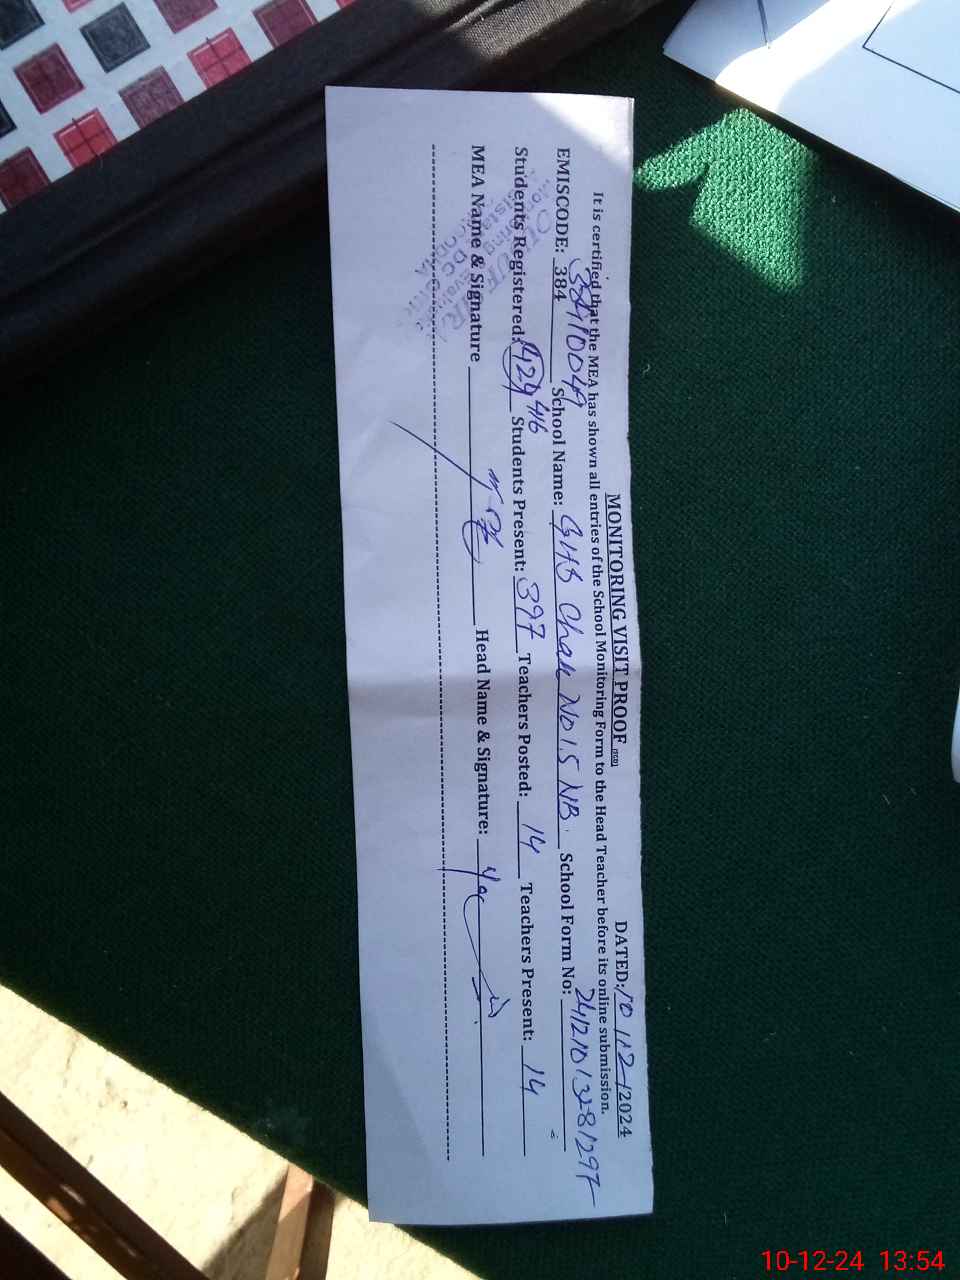 MONITORING VISIT PROOF (SED) DATED: 10/12/2024
It is certified that the MEA has shown all entries of the School Monitoring Form to the Head Teacher before its online submission.
38410049
EMISCODE: 384 School Name: GHS Chak No 15 NB. School Form No:
416
Students Registered: Students Present: 397 Teachers Posted: 14 Teachers Present: 14
MEA Name & Signature Head Name & Signature:
10-12-24 13:54